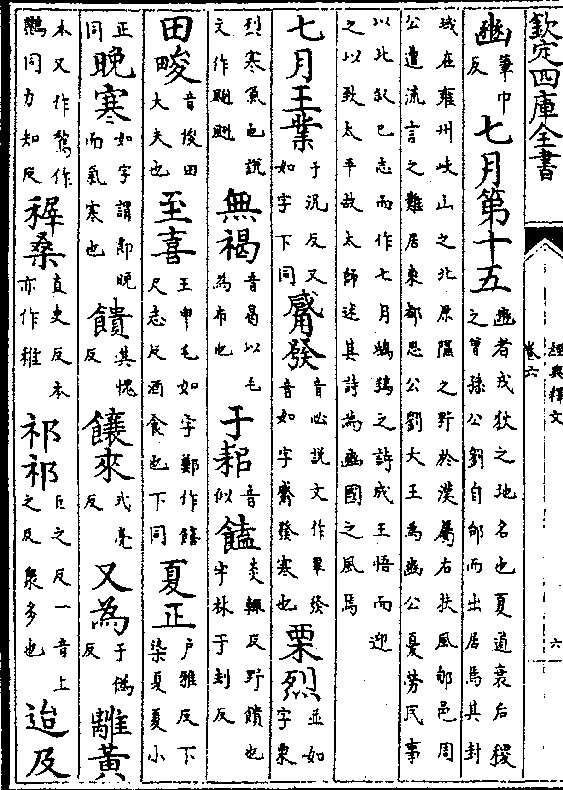 欽定四庫全書
經典釋文
卷六
六
豳筆巾反七月第十五豳者戎狄之地名也夏道衰后稷之曾孫公劉自邰而出居焉其封
域在雍州岐山之北原隰之野於漢屬右扶風郇邑周
公遭流言之難居東都思公劉大王為豳公憂勞民事
以此敘已志而作七月鴟鴞之詩成王悟而迎
之以致太平故太師述其詩為豳國之風焉
七月王業于況反又如字下同觱發音必說文作畢發音如字觱發寒也栗烈並如字栗
烈寒氣也說文作颲颲無褐音曷以毛為布也于耜音似饁炎輒反野饋也字林于刦反
田畯音俊田大夫也至喜王申毛如字鄭作饎尺志反酒食也下同夏正戶雅反下染夏夏小
正同晚寒如字謂節晚而氣寒也饋其愧反饟來式亮反又為于偽反離黃
本又作鵹作鸝同力知反穉桑直吏反本亦作稚祁祁巨之反一音上之反衆多也迨及